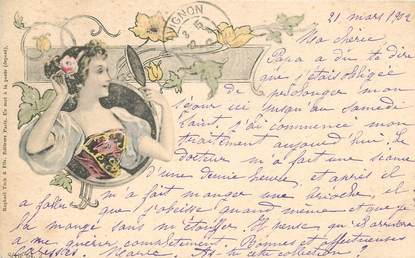 AVIGNON
21 mars 1902
Ma chérie
Papa a dû te dire
que j'étais obligée
de prolonger mon
séjour ici jusqu'au samedi
saint, j'ai commencé mon
traitement aujourd'hui. Le
docteur m'a fait une séance
d'une demie heure et après il
m'a fait manger une brioche, il
a fallu que j'obéisse quand même et que je
la mange sans m'étouffer. Il pense qu'il arrivera
à me guérir complètement. Bonnes et affectueuses
caresses Jeanne. As-tu cette collection ?
Raphael Tuck & Fils, Editeurs Paris. Un mot à la poste (déposé).